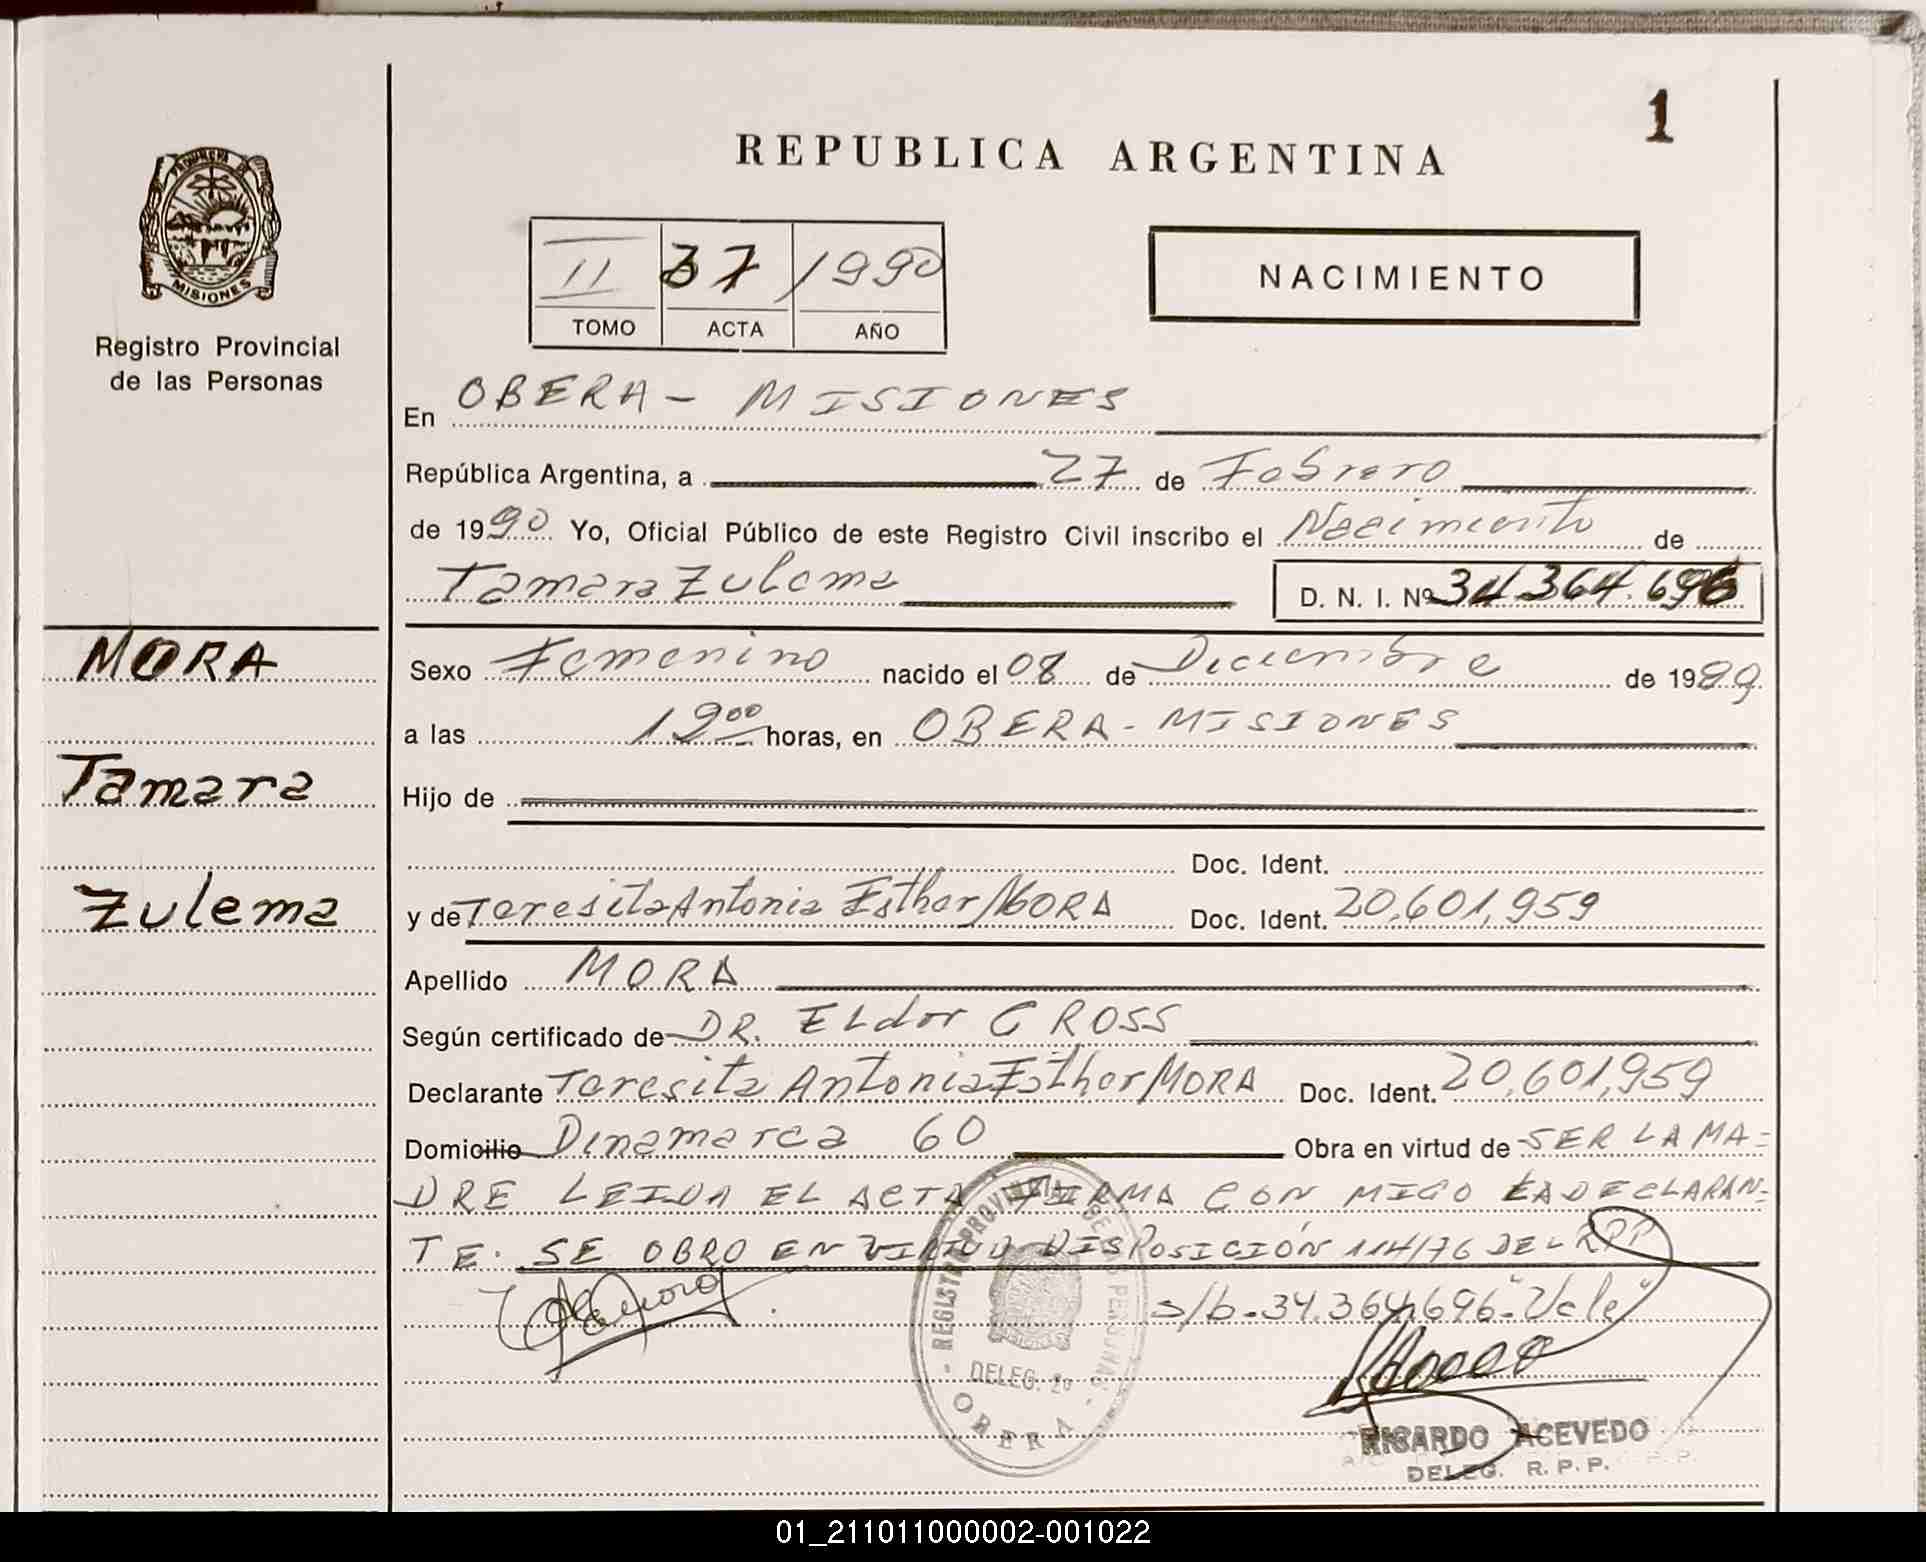 1
REPUBLICA ARGENTINA
PROVINCIA DE
MISIONES
Registro Provincial
de las Personas
II 37 1990
TOMO ACTA AÑO
NACIMIENTO
En OBERA - MISIONES
República Argentina, a 27 de Febrero
de 1990 Yo, Oficial Público de este Registro Civil inscribo el Nacimiento de
Tamara Zulema D. N. I. Nº 34.364.696
MORA
Tamara
Zulema
Sexo Femenino nacido el 08 de Diciembre de 1989
a las 12 00 horas, en OBERA - MISIONES
Hijo de
Doc. Ident.
y de Teresita Antonia Esther MORA Doc. Ident. 20.601.959
Apellido MORA
Según certificado de DR. ELdor CROSS
Declarante Teresita Antonia Esther MORA Doc. Ident. 20.601.959
Domicilio Dinamarca 60 Obra en virtud de SER LA MA=
DRE LEIDA EL ACTA FIRMA CON MIGO LA DECLARAN=
TE. SE OBRO EN VIRTUD DISPOSICIÓN 114/76 DEL RPP
s/b - 34.364.696 - "Vale"
REGISTRO PROVINCIAL DE LAS PERSONAS
DELEG. 2º
OBERA
RICARDO ACEVEDO
DELEG. R. P. P.
01_211011000002-001022